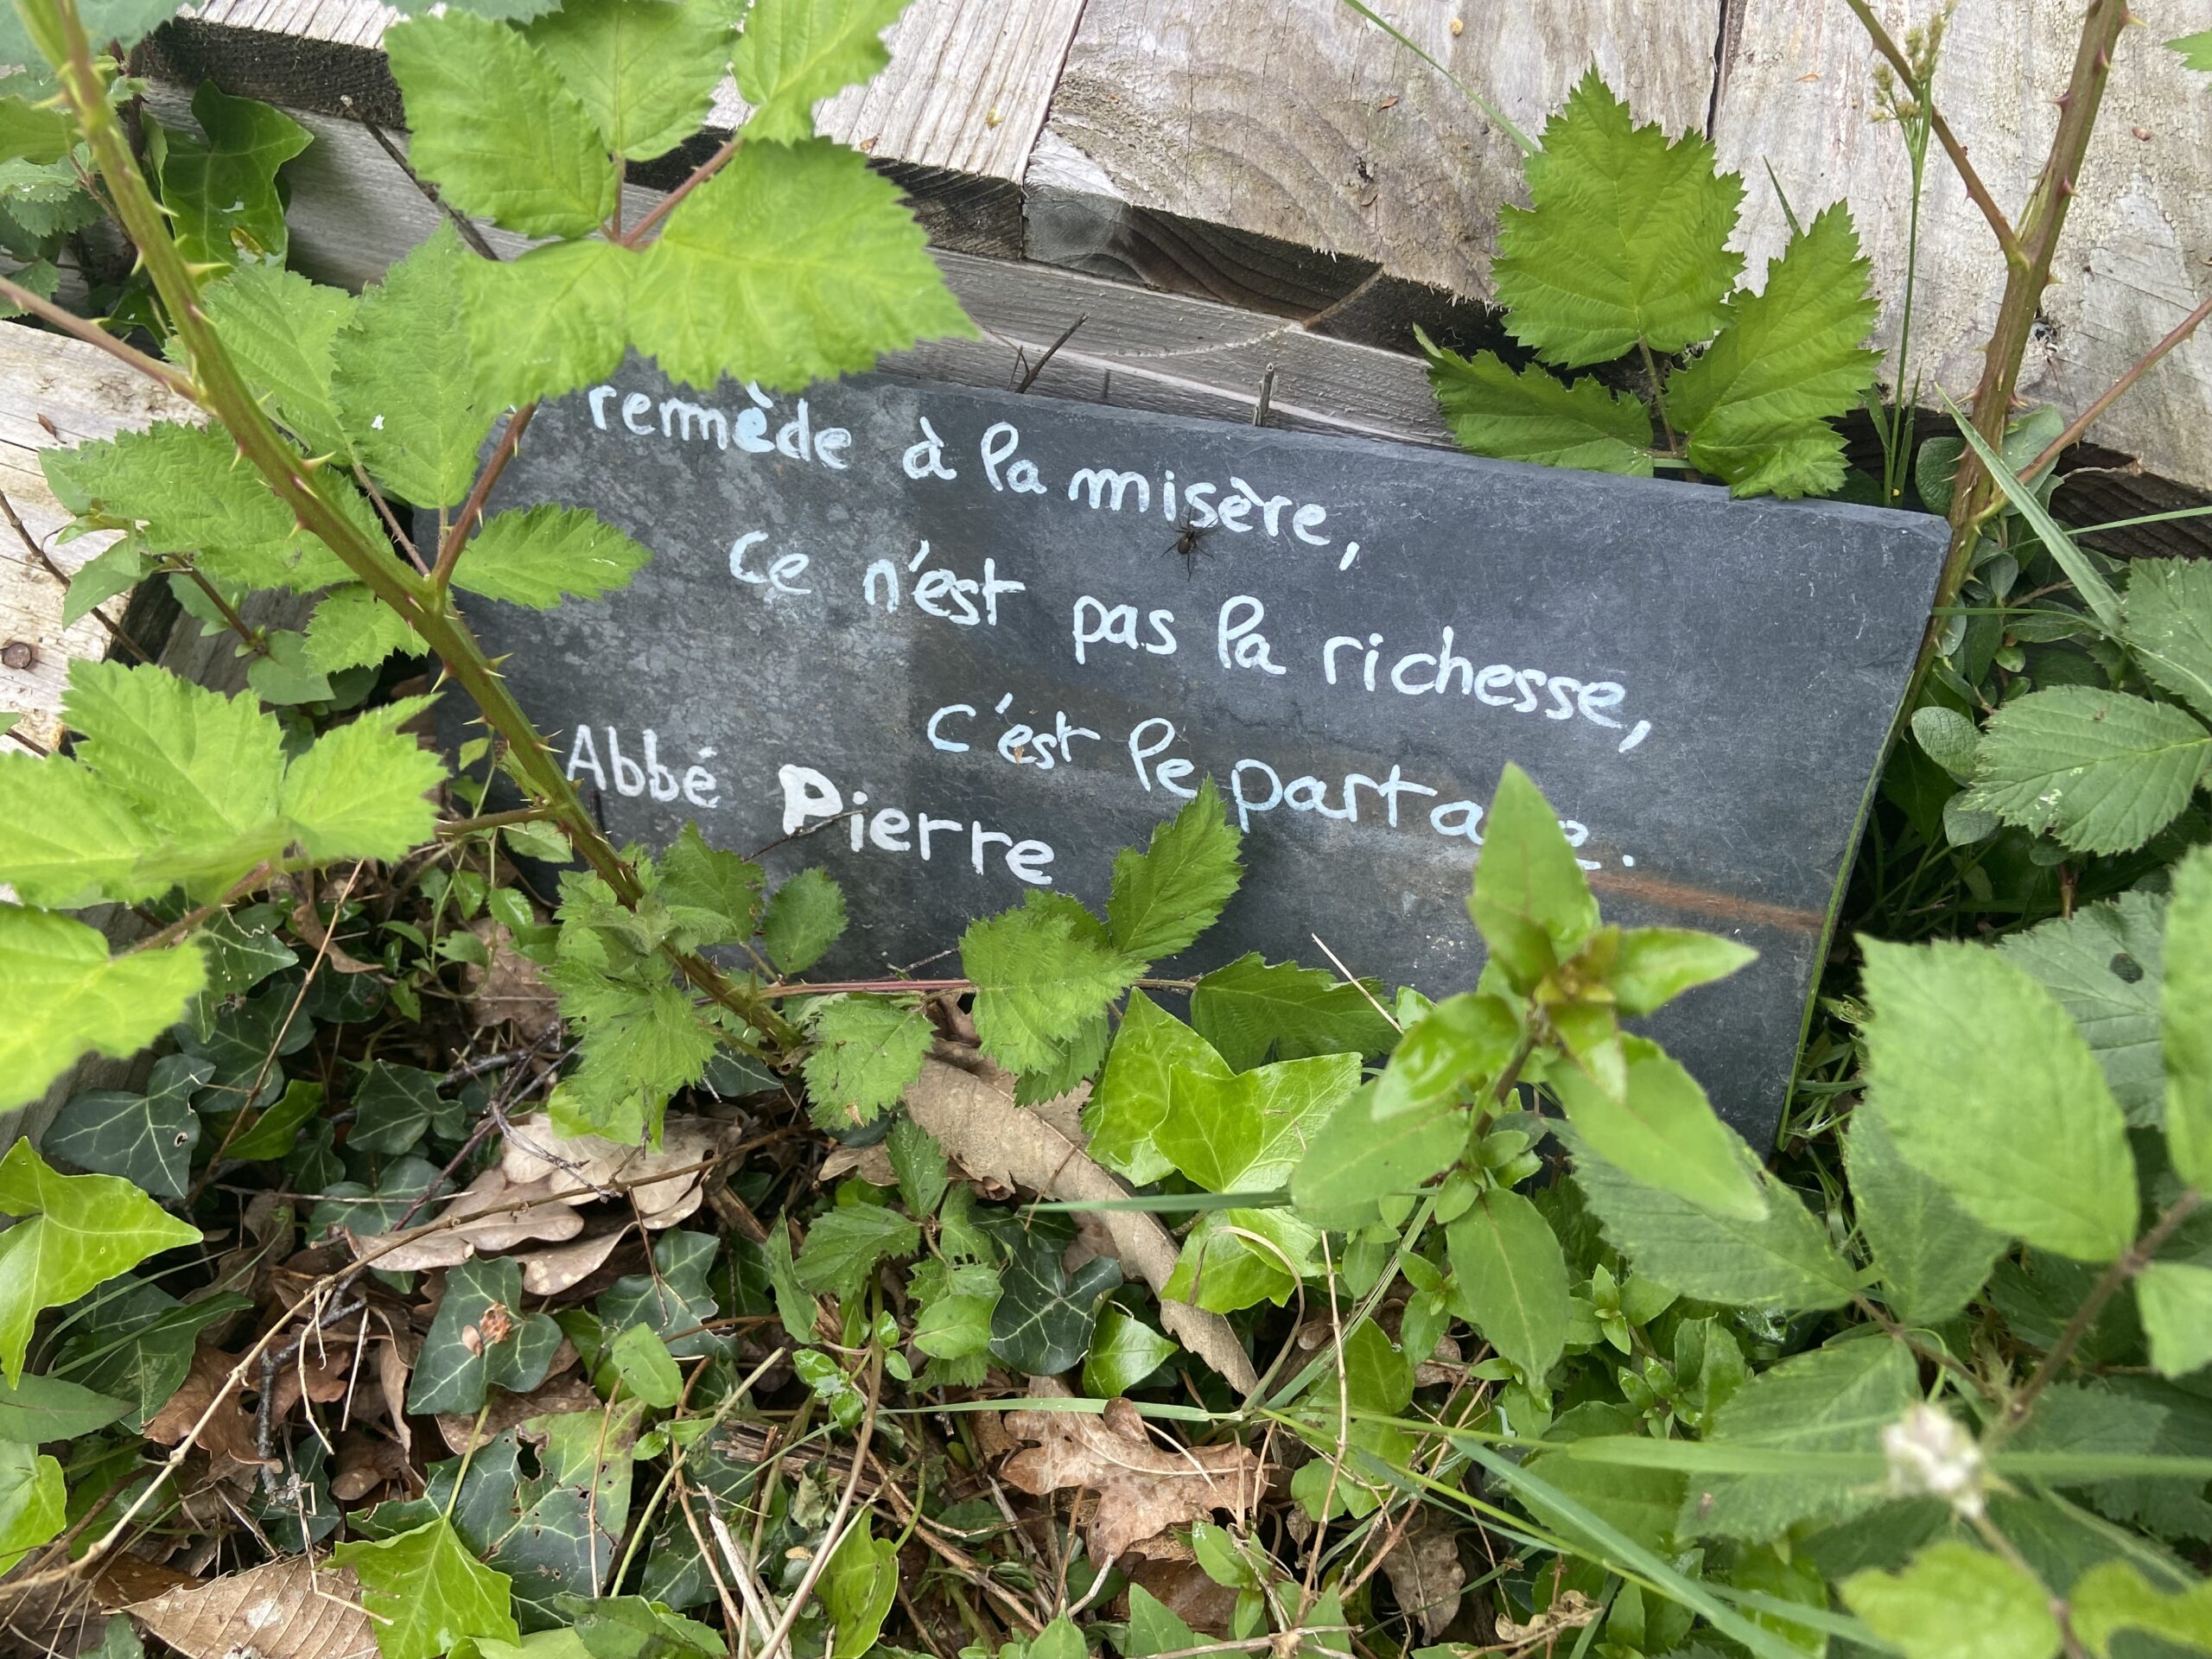 remède à la misère,
ce n'est pas la richesse,
c'est le partage.
Abbé Pierre